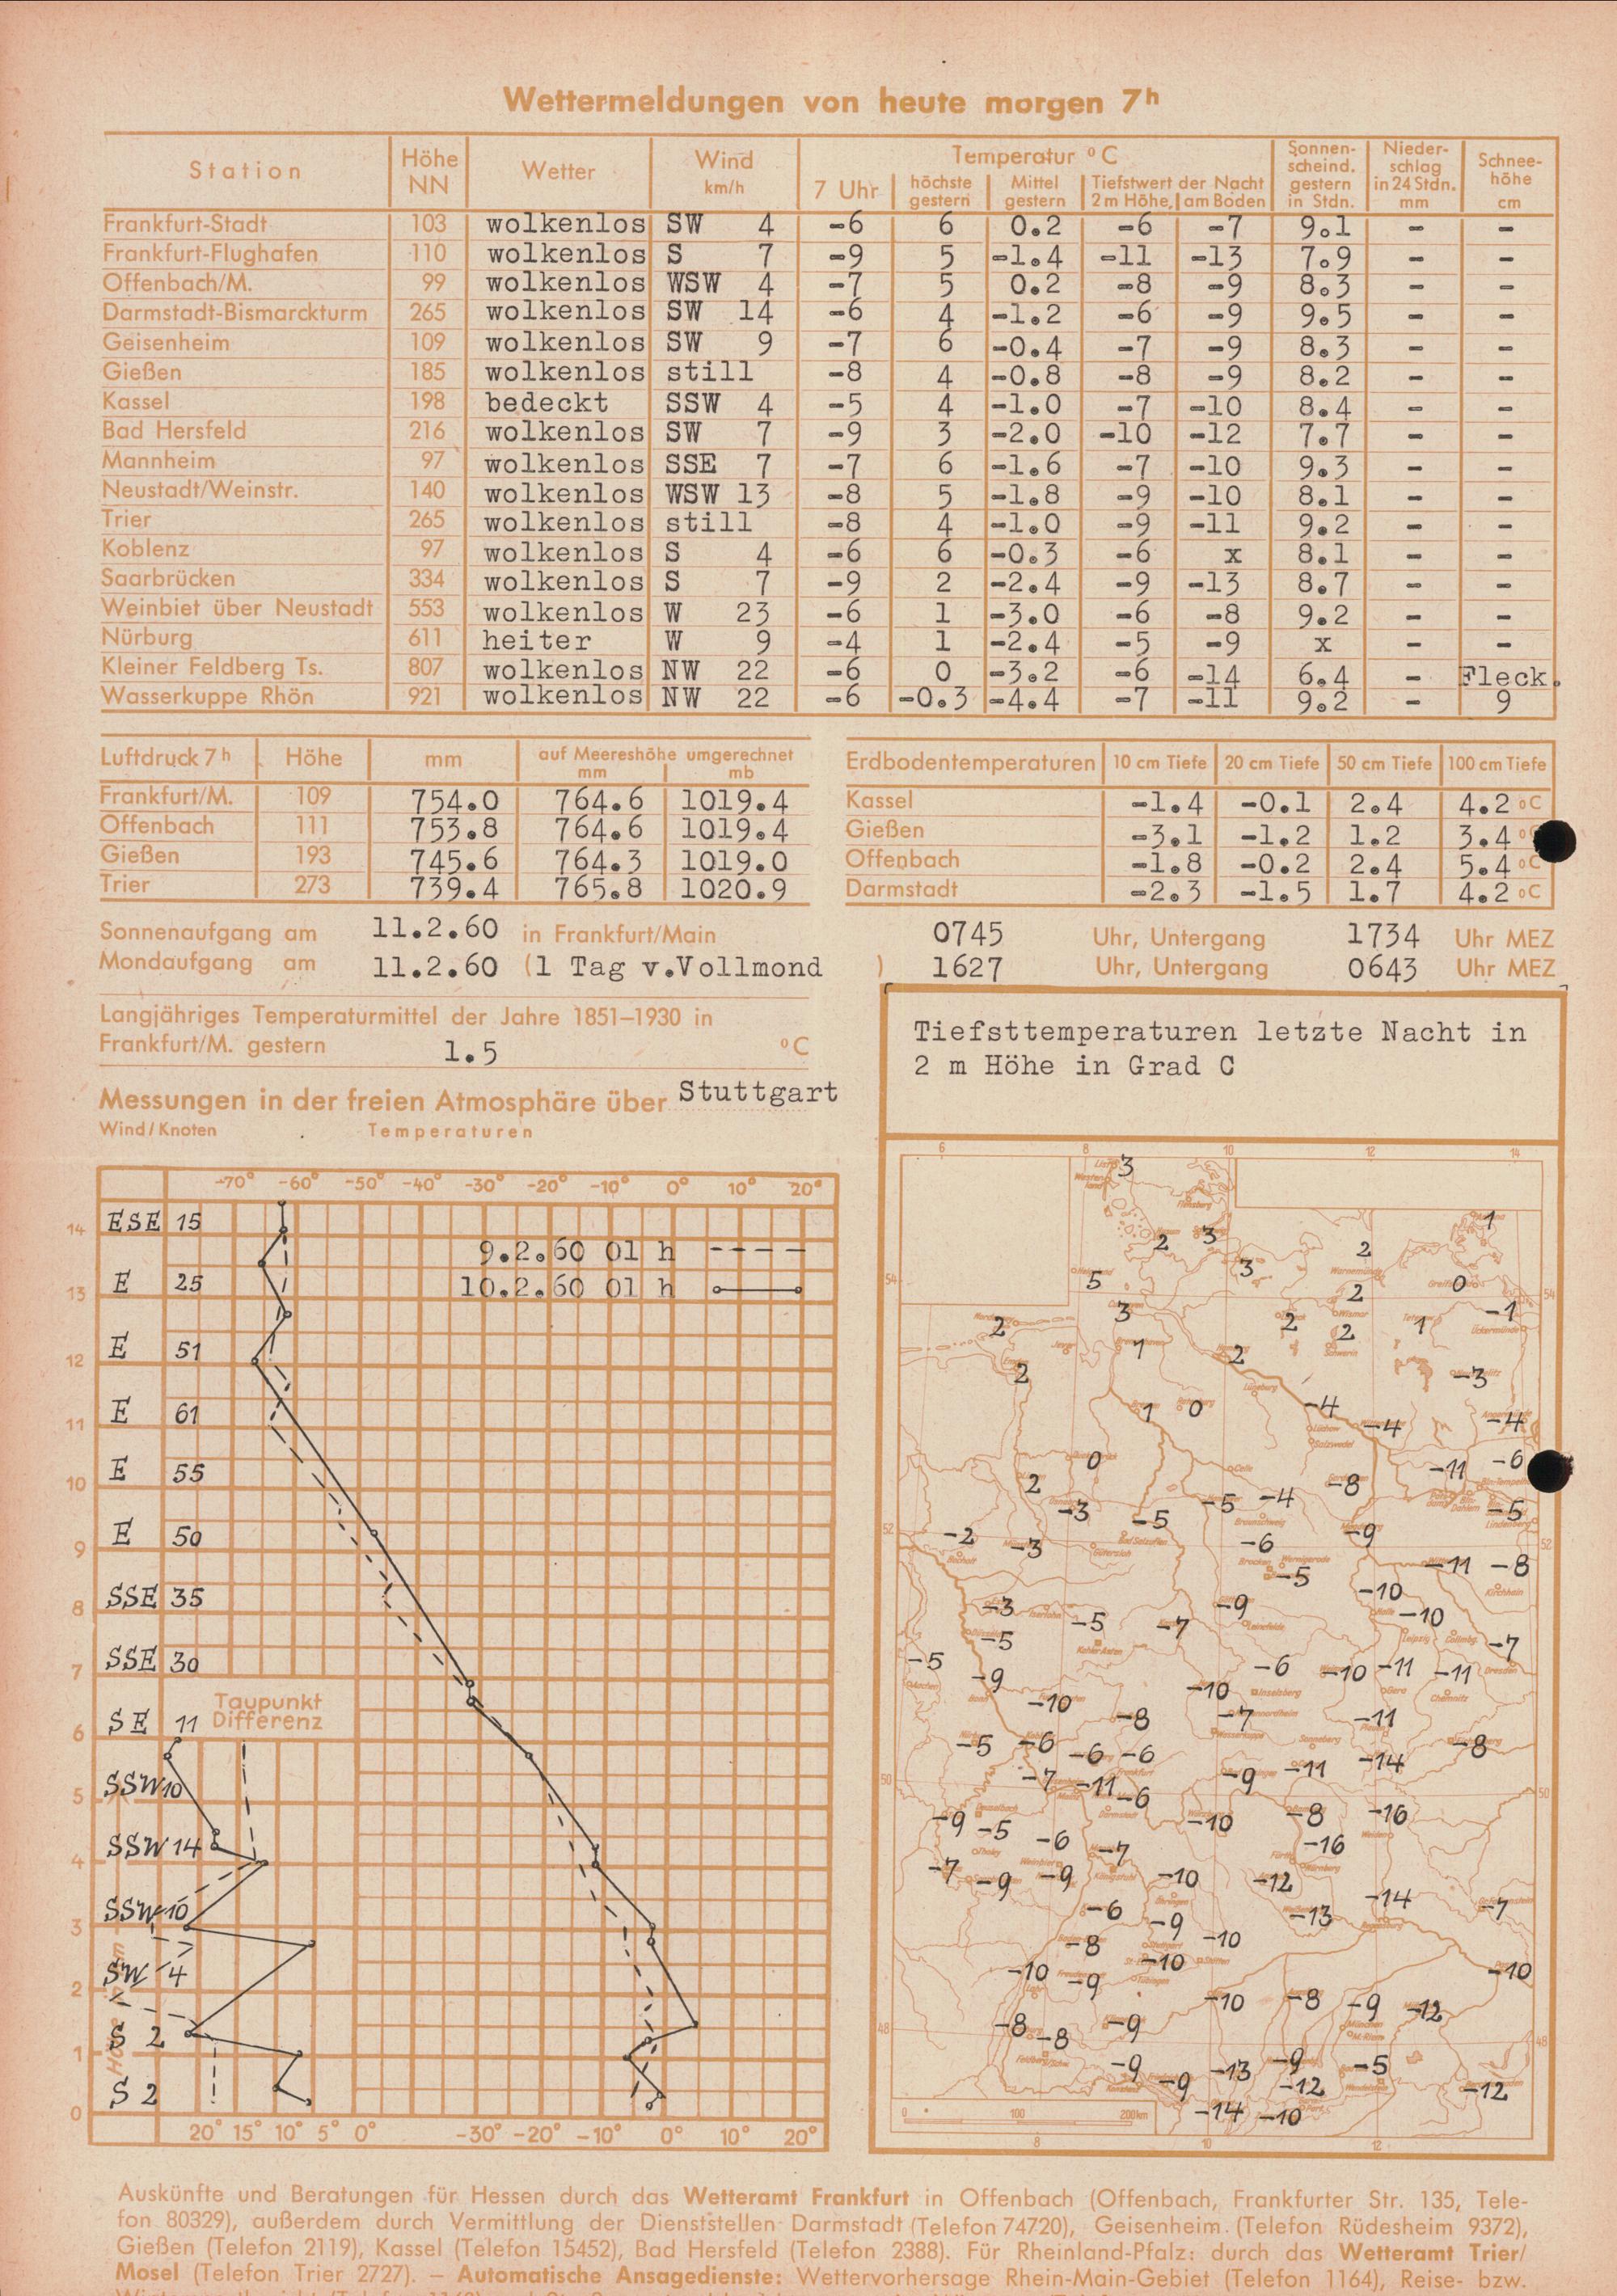 Wettermeldungen von heute morgen 7h
Station Höhe NN Wetter Wind km/h Temperatur °C 7 Uhr höchste gestern Mittel gestern Tiefstwert der Nacht 2 m Höhe, am Boden Sonnenscheind. gestern in Stdn. Niederschlag in 24 Stdn. mm Schneehöhe cm
Frankfurt-Stadt 103 wolkenlos SW 4 -6 6 0.2 -6 -7 9.1 - -
Frankfurt-Flughafen 110 wolkenlos S 7 -9 5 -1.4 -11 -13 7.9 - -
Offenbach/M. 99 wolkenlos WSW 4 -7 5 0.2 -8 -9 8.3 - -
Darmstadt-Bismarckturm 265 wolkenlos SW 14 -6 4 -1.2 -6 -9 9.5 - -
Geisenheim 109 wolkenlos SW 9 -7 6 -0.4 -7 -9 8.3 - -
Gießen 185 wolkenlos still -8 4 -0.8 -8 -9 8.2 - -
Kassel 198 bedeckt SSW 4 -5 4 -1.0 -7 -10 8.4 - -
Bad Hersfeld 216 wolkenlos SW 7 -9 3 -2.0 -10 -12 7.7 - -
Mannheim 97 wolkenlos SSE 7 -7 6 -1.6 -7 -10 9.3 - -
Neustadt/Weinstr. 140 wolkenlos WSW 13 -8 5 -1.8 -9 -10 8.1 - -
Trier 265 wolkenlos still -8 4 -1.0 -9 -11 9.2 - -
Koblenz 97 wolkenlos S 4 -6 6 -0.3 -6 x 8.1 - -
Saarbrücken 334 wolkenlos S 7 -9 2 -2.4 -9 -13 8.7 - -
Weinbiet über Neustadt 553 wolkenlos W 23 -6 1 -3.0 -6 -8 9.2 - -
Nürburg 611 heiter W 9 -4 1 -2.4 -5 -9 x - -
Kleiner Feldberg Ts. 807 wolkenlos NW 22 -6 0 -3.2 -6 -14 6.4 - Fleck.
Wasserkuppe Rhön 921 wolkenlos NW 22 -6 -0.3 -4.4 -7 -11 9.2 - 9
Luftdruck 7h Höhe mm auf Meereshöhe umgerechnet mm mb
Frankfurt/M. 109 754.0 764.6 1019.4
Offenbach 111 753.8 764.6 1019.4
Gießen 193 745.6 764.3 1019.0
Trier 273 739.4 765.8 1020.9
Erdbodentemperaturen 10 cm Tiefe 20 cm Tiefe 50 cm Tiefe 100 cm Tiefe
Kassel -1.4 -0.1 2.4 4.2 °C
Gießen -3.1 -1.2 1.2 3.4 °C
Offenbach -1.8 -0.2 2.4 5.4 °C
Darmstadt -2.3 -1.5 1.7 4.2 °C
Sonnenaufgang am 11.2.60 in Frankfurt/Main 0745 Uhr, Untergang 1734 Uhr MEZ
Mondaufgang am 11.2.60 (1 Tag v.Vollmond ) 1627 Uhr, Untergang 0643 Uhr MEZ
Langjähriges Temperaturmittel der Jahre 1851–1930 in
Frankfurt/M. gestern 1.5 °C
Messungen in der freien Atmosphäre über Stuttgart
Wind/Knoten Temperaturen
-70° -60° -50° -40° -30° -20° -10° 0° 10° 20°
14 ESE 15
9.2.60 01 h
13 E 25 10.2.60 01 h
12 E 51
11 E 61
10 E 55
9 E 50
8 SSE 35
7 SSE 30
Taupunkt
Differenz
6 SE 11
5 SSW 10
4 SSW 14
3 SSW 10
2 SW 4
1 S 2
0 S 2
20° 15° 10° 5° 0° -30° -20° -10° 0° 10° 20°
Tiefsttemperaturen letzte Nacht in
2 m Höhe in Grad C
6 8 10 12 14
3
1
2 3 2
54 5 3 2 0 54
2 3 2 2 1 -1
1 2
2 -3
1 0 -4 -4 -4
0 -11 -6
2 -8
-3 -5 -5 -4 -5
52 -2 -3 -6 -9 52
-5 -11 -8
-3 -5 -7 -9 -10 -10
-5 -7
-5 -9 -6 -10 -11 -11
-10 -8 -10 -7 -11
-5 -6 -6 -6 -14 -8
50 -7 -11 -6 -9 -11 50
-9 -5 -10 -8 -16
-6 -7 -16
-7 -9 -9 -10 -12 -14 -7
-6 -9 -13
-8 -10 -10
-10 -9 -10
-10 -8 -9 -12
48 -8 -8 -9 48
-9 -9 -13 -9 -5
-12 -12
-14 -10
0 100 200km
8 10 12
Auskünfte und Beratungen für Hessen durch das Wetteramt Frankfurt in Offenbach (Offenbach, Frankfurter Str. 135, Tele-
fon 80329), außerdem durch Vermittlung der Dienststellen Darmstadt (Telefon 74720), Geisenheim (Telefon Rüdesheim 9372),
Gießen (Telefon 2119), Kassel (Telefon 15452), Bad Hersfeld (Telefon 2388). Für Rheinland-Pfalz: durch das Wetteramt Trier/
Mosel (Telefon Trier 2727). – Automatische Ansagedienste: Wettervorhersage Rhein-Main-Gebiet (Telefon 1164), Reise- bzw.